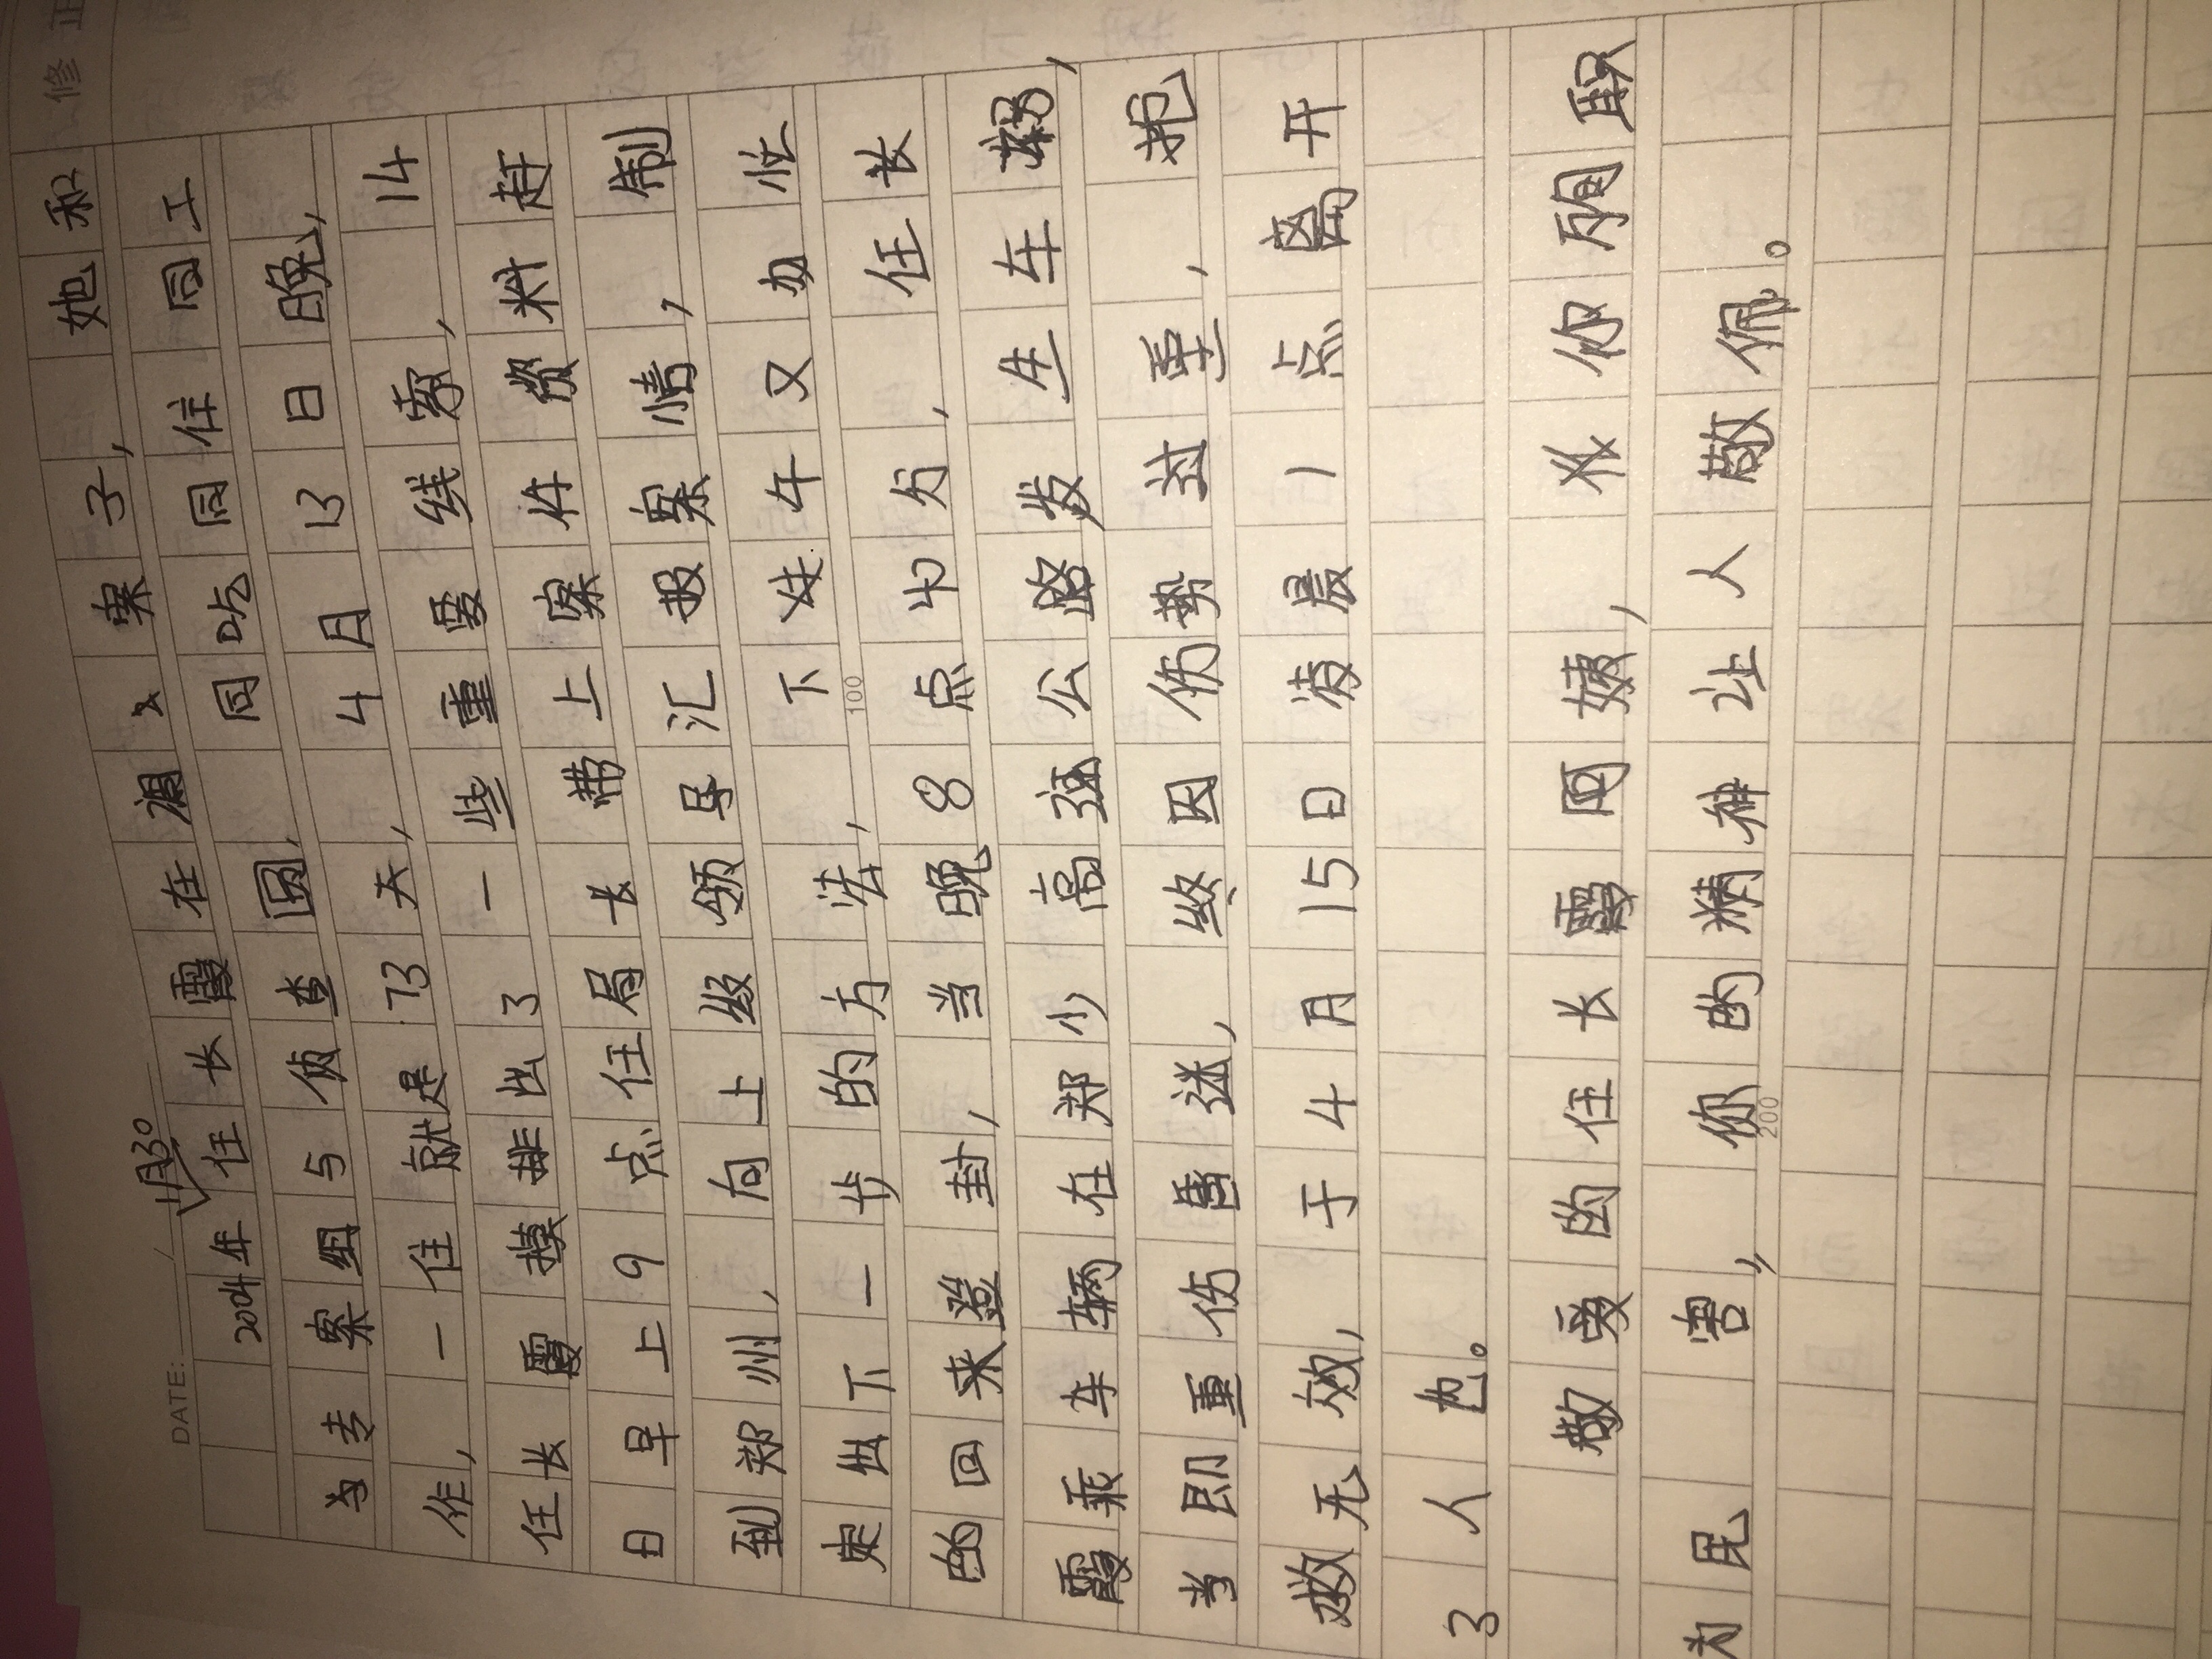 DATE:
1月30
2004年任长霞在调案子，她和
专案组与侦查圆，同吃同住同工
作，一住就是73天，4月13日晚，
任长霞摸排出3一些重要线索，14
日早上9点任局长带上案件资料赶
到郑州，向上级领导汇报案情，制
定出下一步的方法，下午又办忙
100
的回来登封，当晚8点40分，任长
霞乘车辆在郑少高速公路发生车祸，
当即重伤昏迷，终因伤势过重，抱
救无效，于4月15日凌晨1点离开
3人也。
敬爱的任长霞阿姨，你所取
为民害，你的精神让人敬佩。
200